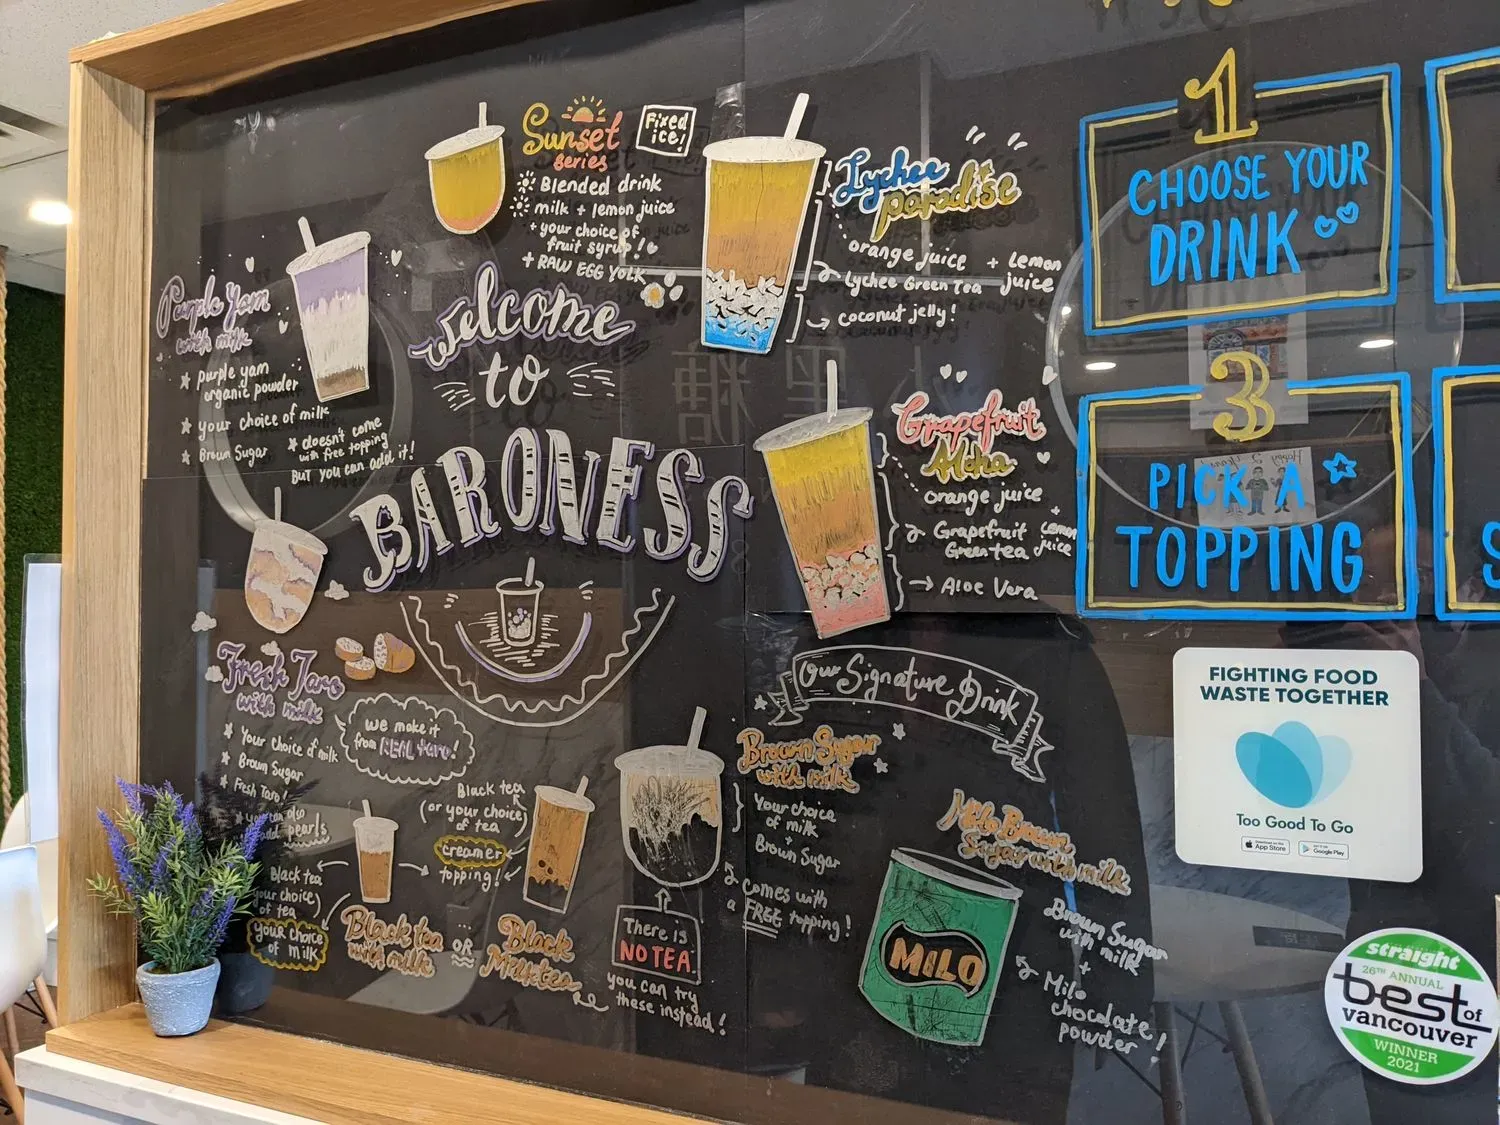 Sunset
series
Fixed
ice!
Blended drink
milk + lemon juice
+ your choice of
fruit syrup!
+ RAW EGG YOLK
Lychee
paradise
orange juice + Lemon
juice
Lychee Green Tea
coconut jelly!
Purple Yam
with milk
purple yam
organic powder
your choice of milk
Brown Sugar
* doesn't come
with free topping
BUT you can add it!
Welcome
to
BARONESS
Grapefruit
Aloha
orange juice
+
Grapefruit Lemon
Green tea juice
Aloe Vera
Fresh Taro
with milk
Your choice of milk
Brown Sugar
Fresh Taro!
you can also
add pearls
we make it
from REAL taro!
Black tea
(or your choice)
of tea
creamer
topping!
Black tea
your choice)
of tea
your choice
of milk
Black tea
with milk
OR
Black
Milktea
There is
NO TEA
you can try
these instead!
Our Signature Drink
Brown Sugar
with milk
Your choice
of milk
+
Brown Sugar
comes with
a FREE topping!
Milo Brown
Sugar with milk
MILO
Brown Sugar
with milk
+
Milo
chocolate
powder!
1
CHOOSE YOUR
DRINK
3
PICK A
TOPPING
FIGHTING FOOD
WASTE TOGETHER
Too Good To Go
Download on the
App Store
GET IT ON
Google Play
straight
26TH ANNUAL
best of
vancouver
WINNER
2021